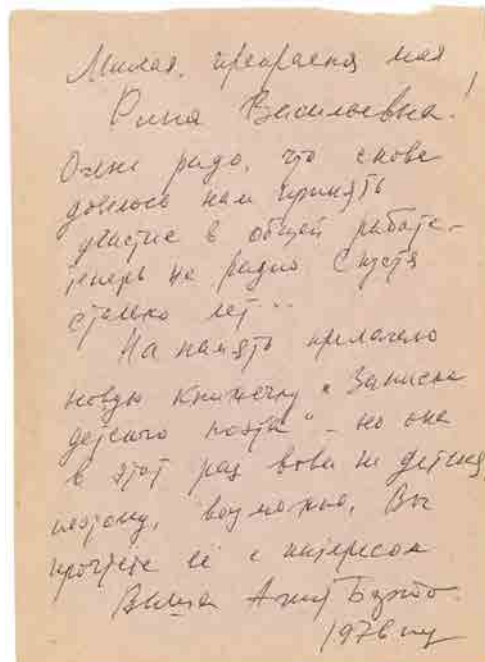 Милая, прекрасная моя
Рина Васильевна!
Очень рада, что снова
довелось нам принять
участие в общей работе –
теперь на радио. Спустя
столько лет...
На память прилагаю
новую книжечку "Записки
детского поэта" – но она
в этот раз вовсе не детская,
поэтому, возможно, Вы
прочтете её с интересом
Ваша Агния Барто.
1976 год